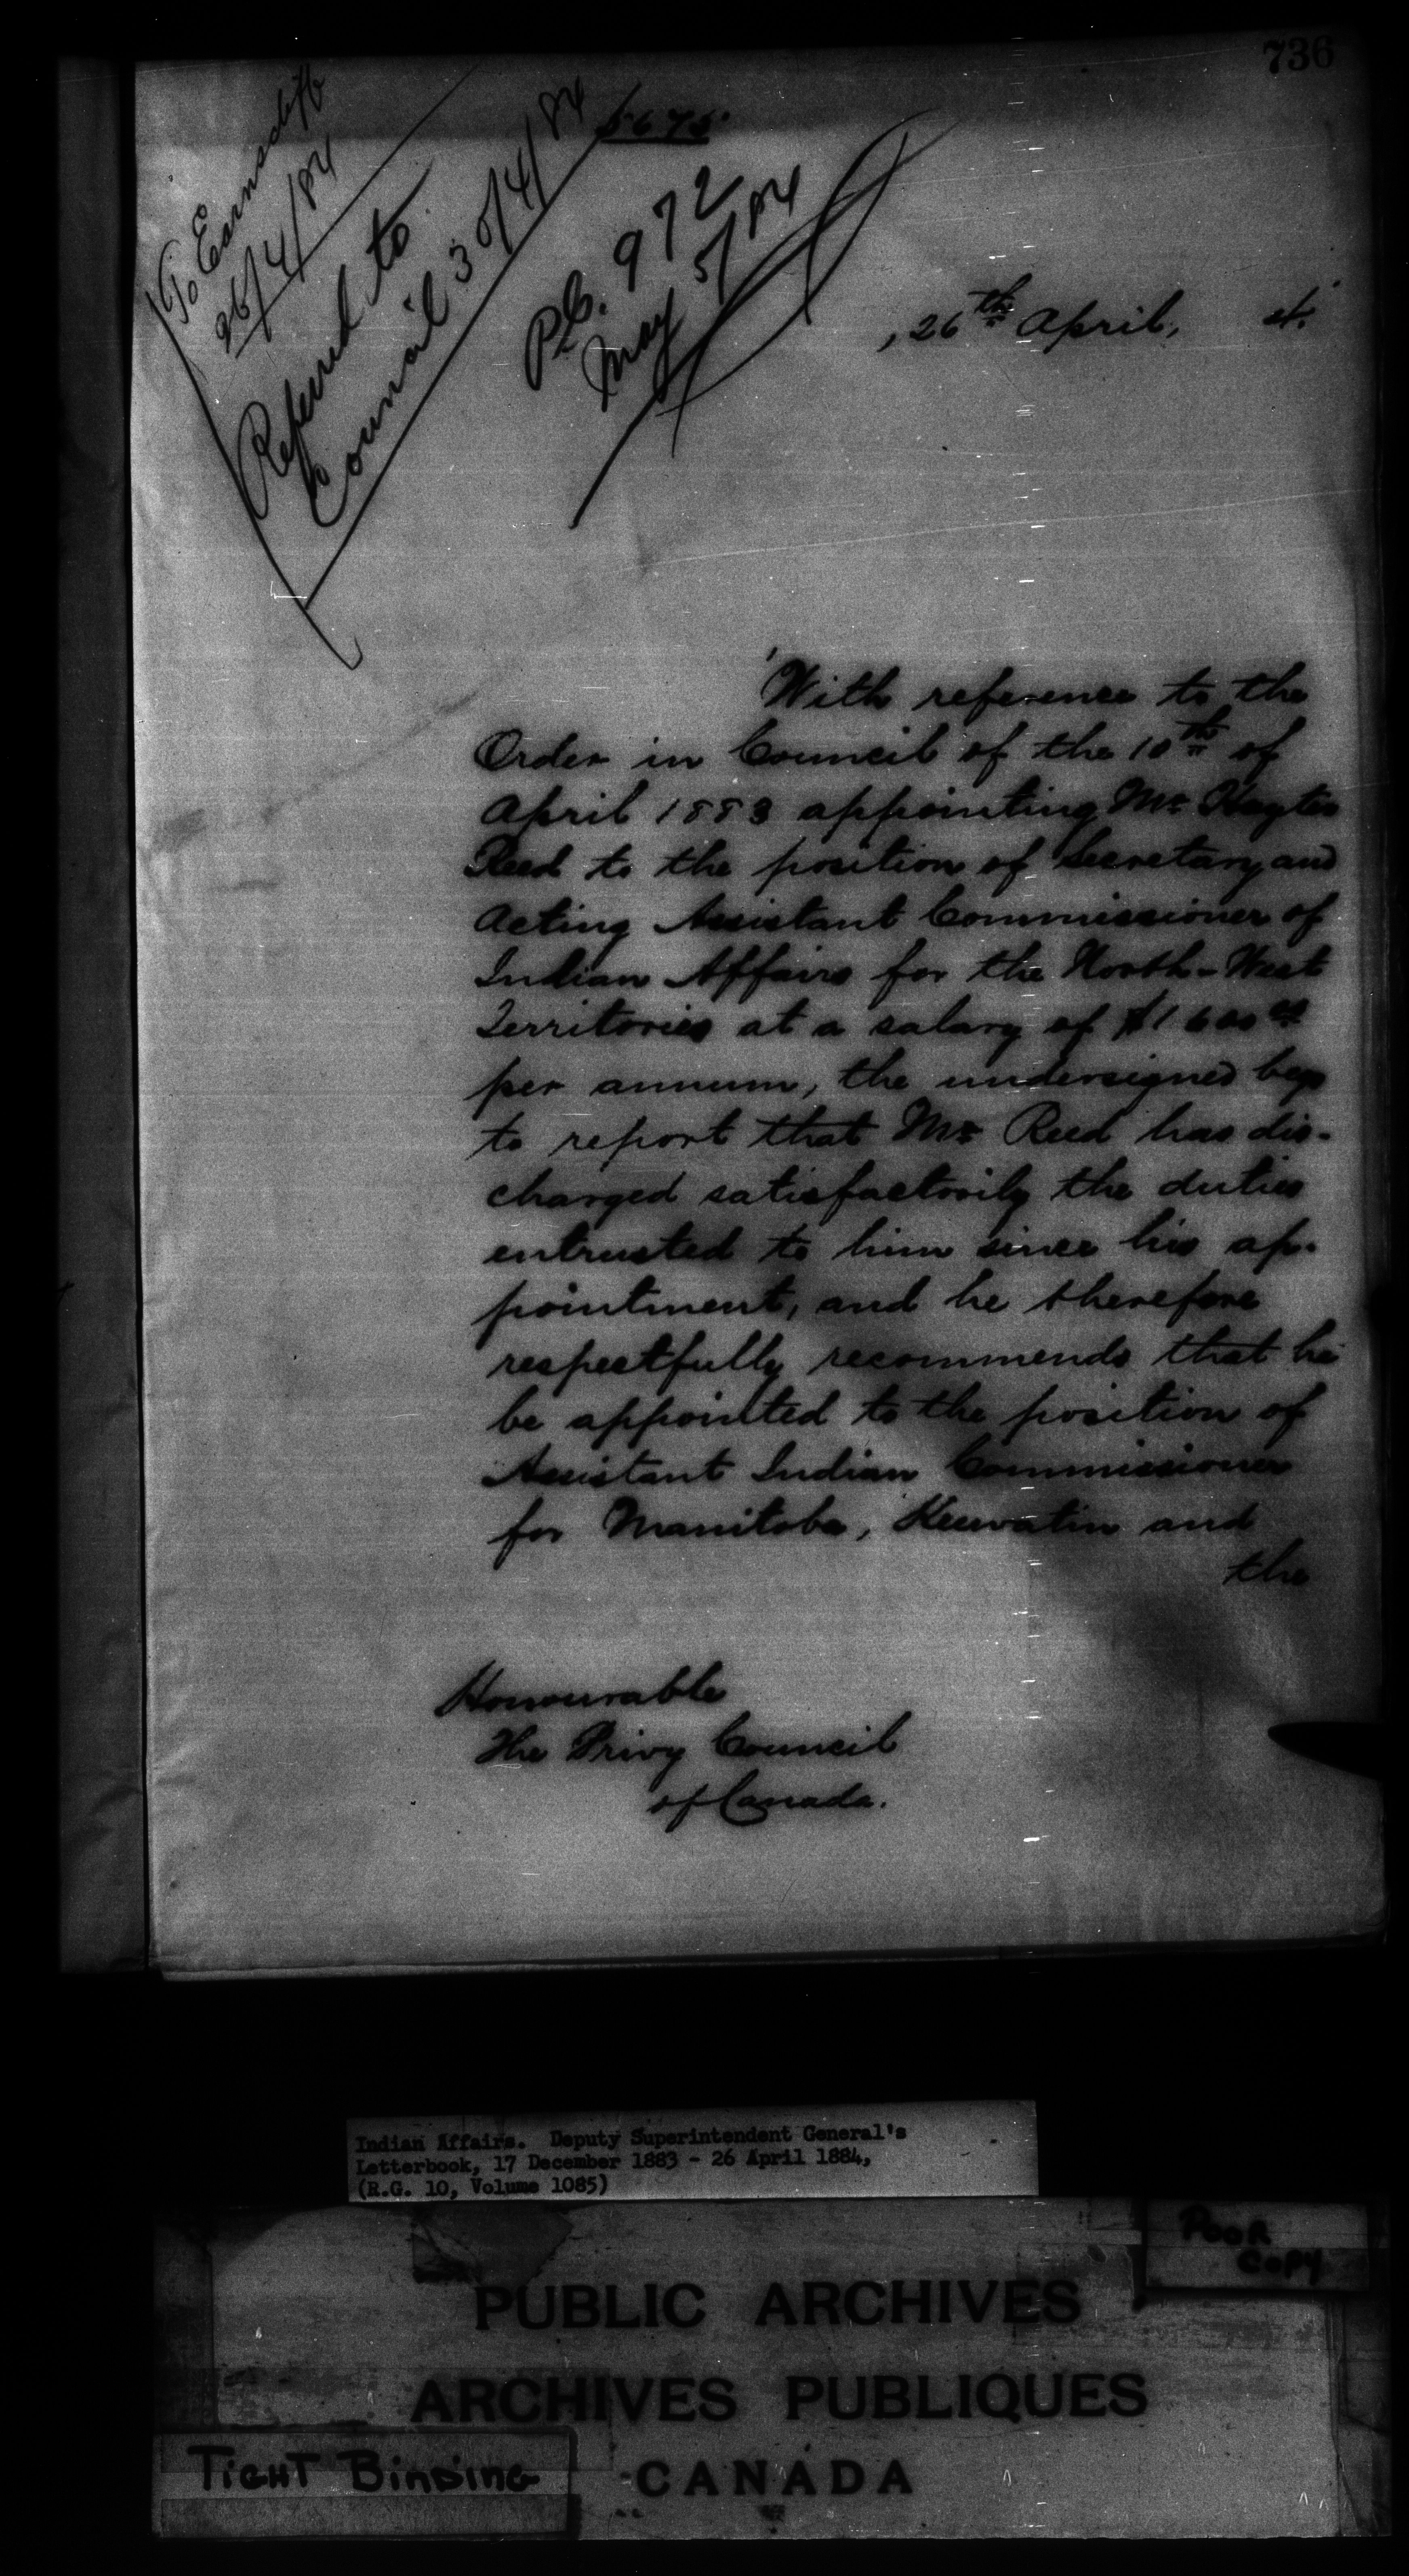 736
5675
To Earnscliffe
26/4/84
Referred to
Council 30/4/84
P.C. 972
May 5/84
, 26th April, 4.
With reference to the
Order in Council of the 10th of
April 1883 appointing Mr Hayter
Reed to the position of Secretary and
Acting Assistant Commissioner of
Indian Affairs for the North-West
Territories at a salary of $1600 00
per annum, the undersigned begs
to report that Mr Reed has dis-
charged satisfactorily the duties
entrusted to him since his ap-
pointment, and he therefore
respectfully recommends that he
be appointed to the position of
Assistant Indian Commissioner
for Manitoba, Keewatin and
the
Honourable
The Privy Council
of Canada.
Indian Affairs. Deputy Superintendent General's
Letterbook, 17 December 1883 - 26 April 1884,
(R.G. 10, Volume 1085)
POOR
COPY
PUBLIC ARCHIVES
ARCHIVES PUBLIQUES
CANADA
TIGHT BINDING